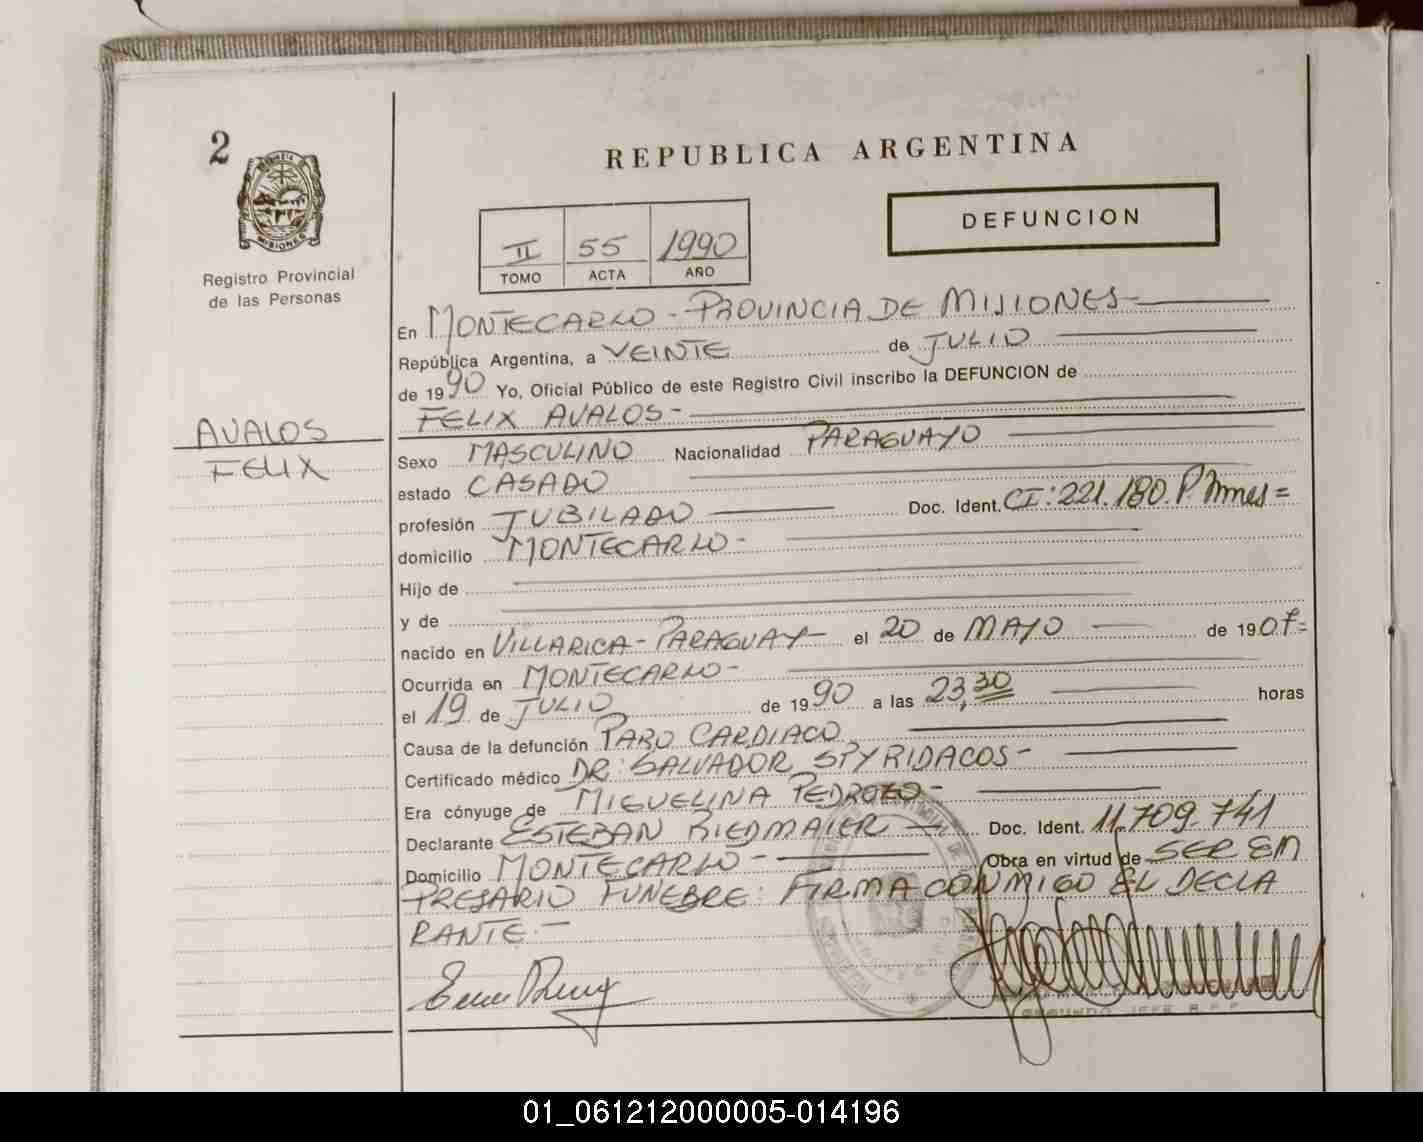 2
MISIONES
Registro Provincial
de las Personas
AVALOS
FELIX
REPUBLICA ARGENTINA
DEFUNCION
II 55 1990
TOMO ACTA AÑO
En MONTECARLO - PROVINCIA DE MISIONES
República Argentina, a VEINTE de JULIO
de 1990 Yo, Oficial Público de este Registro Civil inscribo la DEFUNCION de
FELIX AVALOS -
Sexo MASCULINO Nacionalidad PARAGUAYO
estado CASADO
profesión JUBILADO Doc. Ident. CI: 221.180. P. Mnes =
domicilio MONTECARLO -
Hijo de
y de
nacido en VILLARICA - PARAGUAY - el 20 de MAYO de 1907=
Ocurrida en MONTECARLO -
el 19 de JULIO de 1990 a las 23,30 horas
Causa de la defunción PARO CARDIACO
Certificado médico DR: SALVADOR SPYRIDACOS -
Era cónyuge de MIGUELINA PEDROZO -
Declarante ESTEBAN RIEDMAIER Doc. Ident. 11.709.741
Domicilio MONTECARLO - Obra en virtud de SER EM
PRESARIO FUNEBRE: FIRMA CONMIGO EL DECLA
RANTE. -
SEGUNDO JEFE R.P.P.
01_061212000005-014196